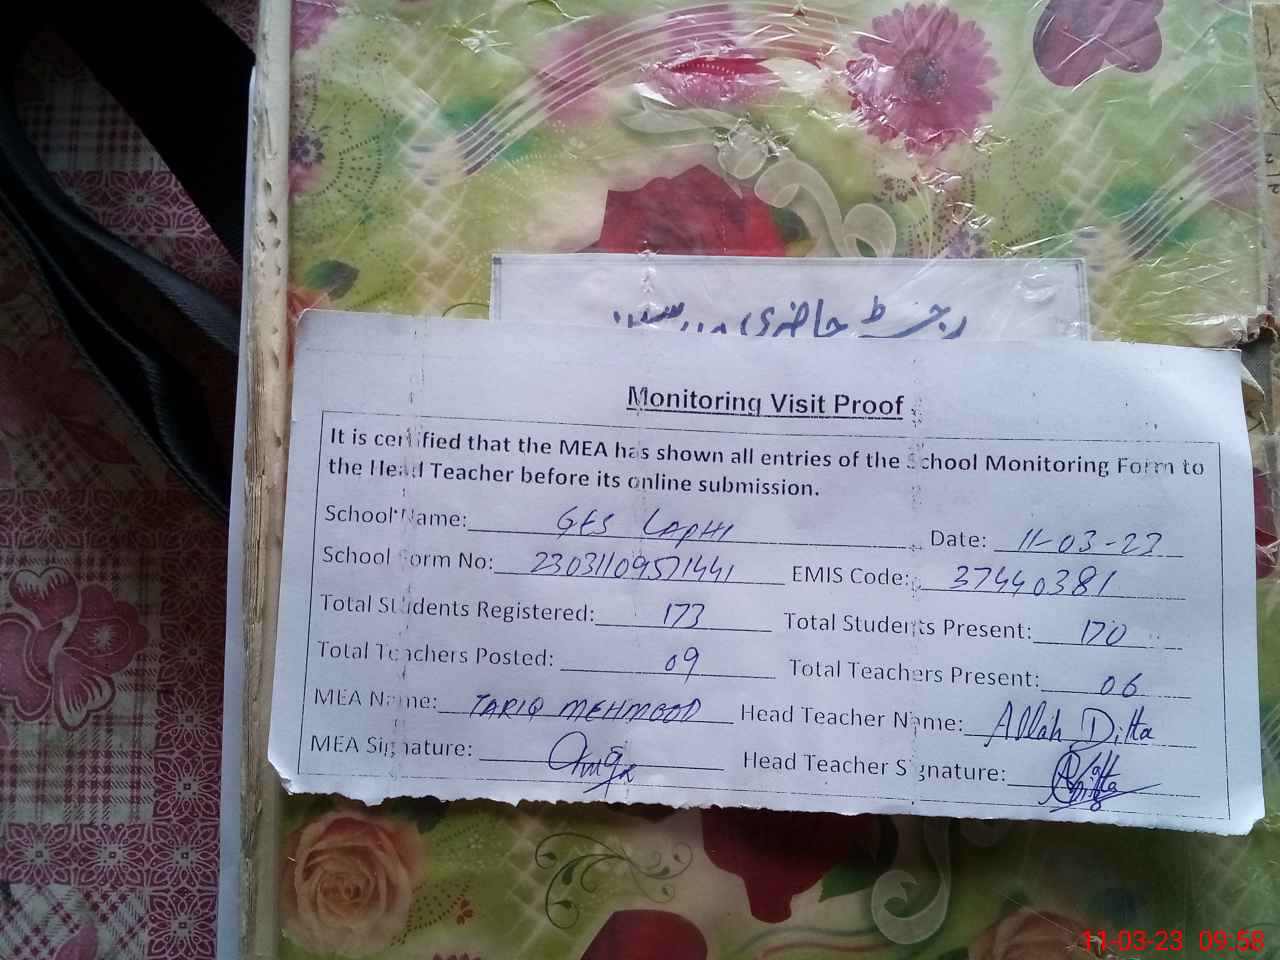 رجسٹر حاضری مدرسین
Monitoring Visit Proof
It is certified that the MEA has shown all entries of the School Monitoring Form to
the Head Teacher before its online submission.
School Name: GES LAPHI Date: 11-03-23
School Form No: 23031109571441 EMIS Code: 37440381
Total Students Registered: 173 Total Students Present: 170
Total Teachers Posted: 09 Total Teachers Present: 06
MEA Name: TARIQ MEHMOOD Head Teacher Name: Allah Ditta
MEA Signature: Head Teacher Signature:
11-03-23 09:58